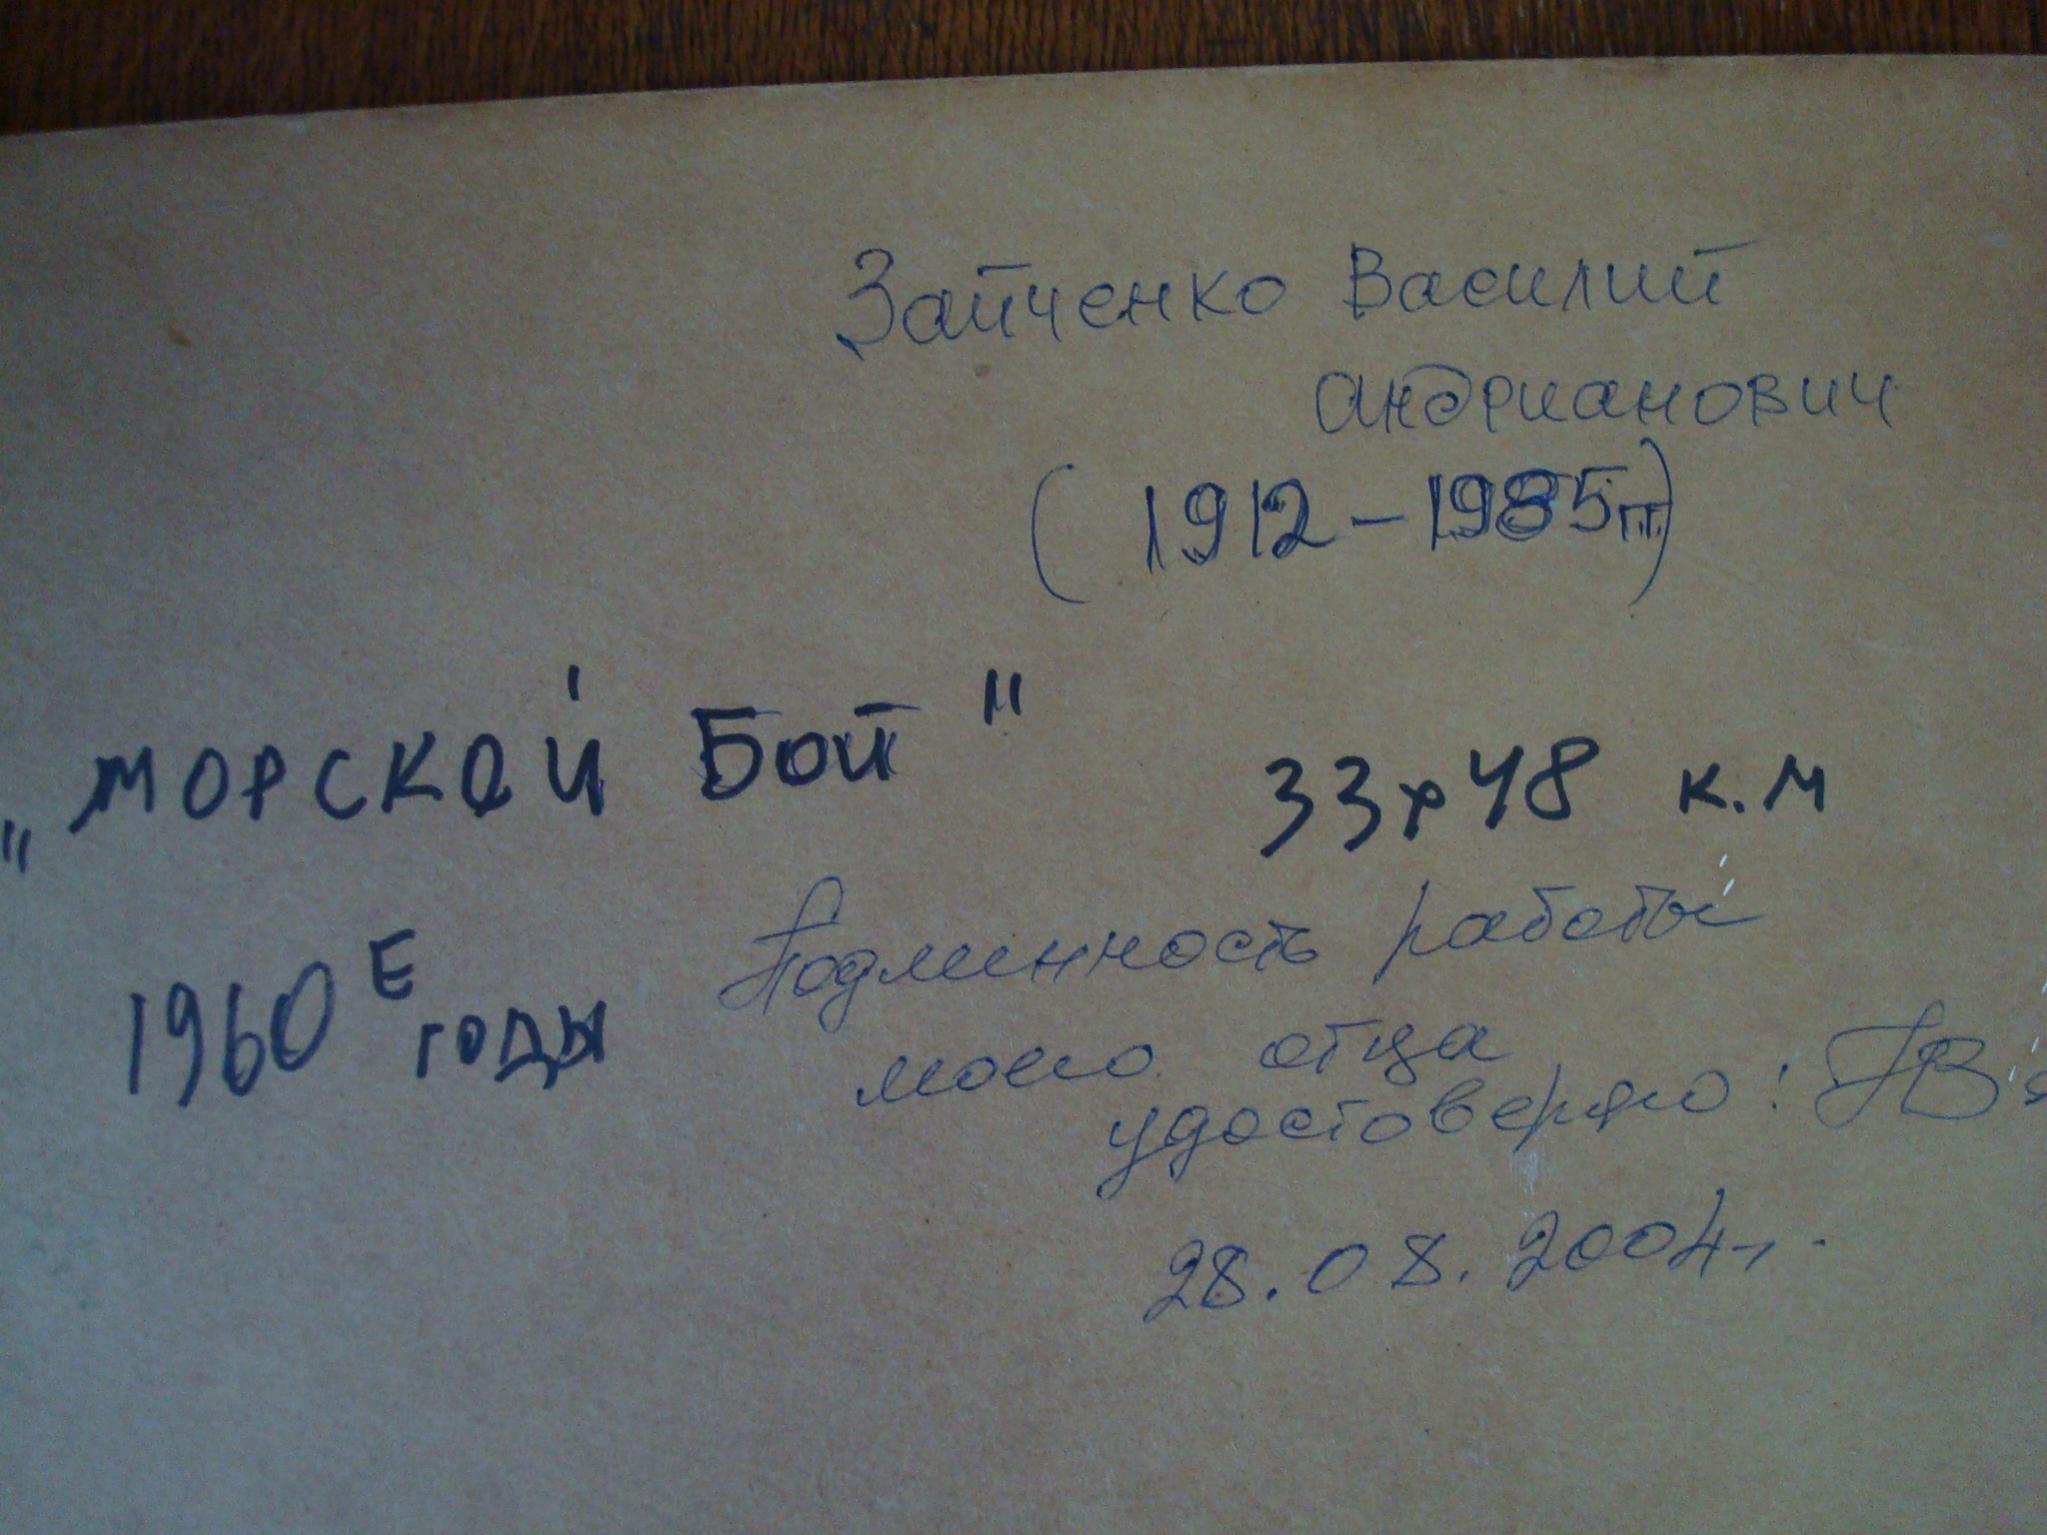 Зайченко Василий
Андрианович
(1912-1985гг.)
"МОРСКОЙ БОЙ" 33х48 к.м
1960Е годы
Подлинность работы
моего отца
удостоверяю:
28.08.2004г.